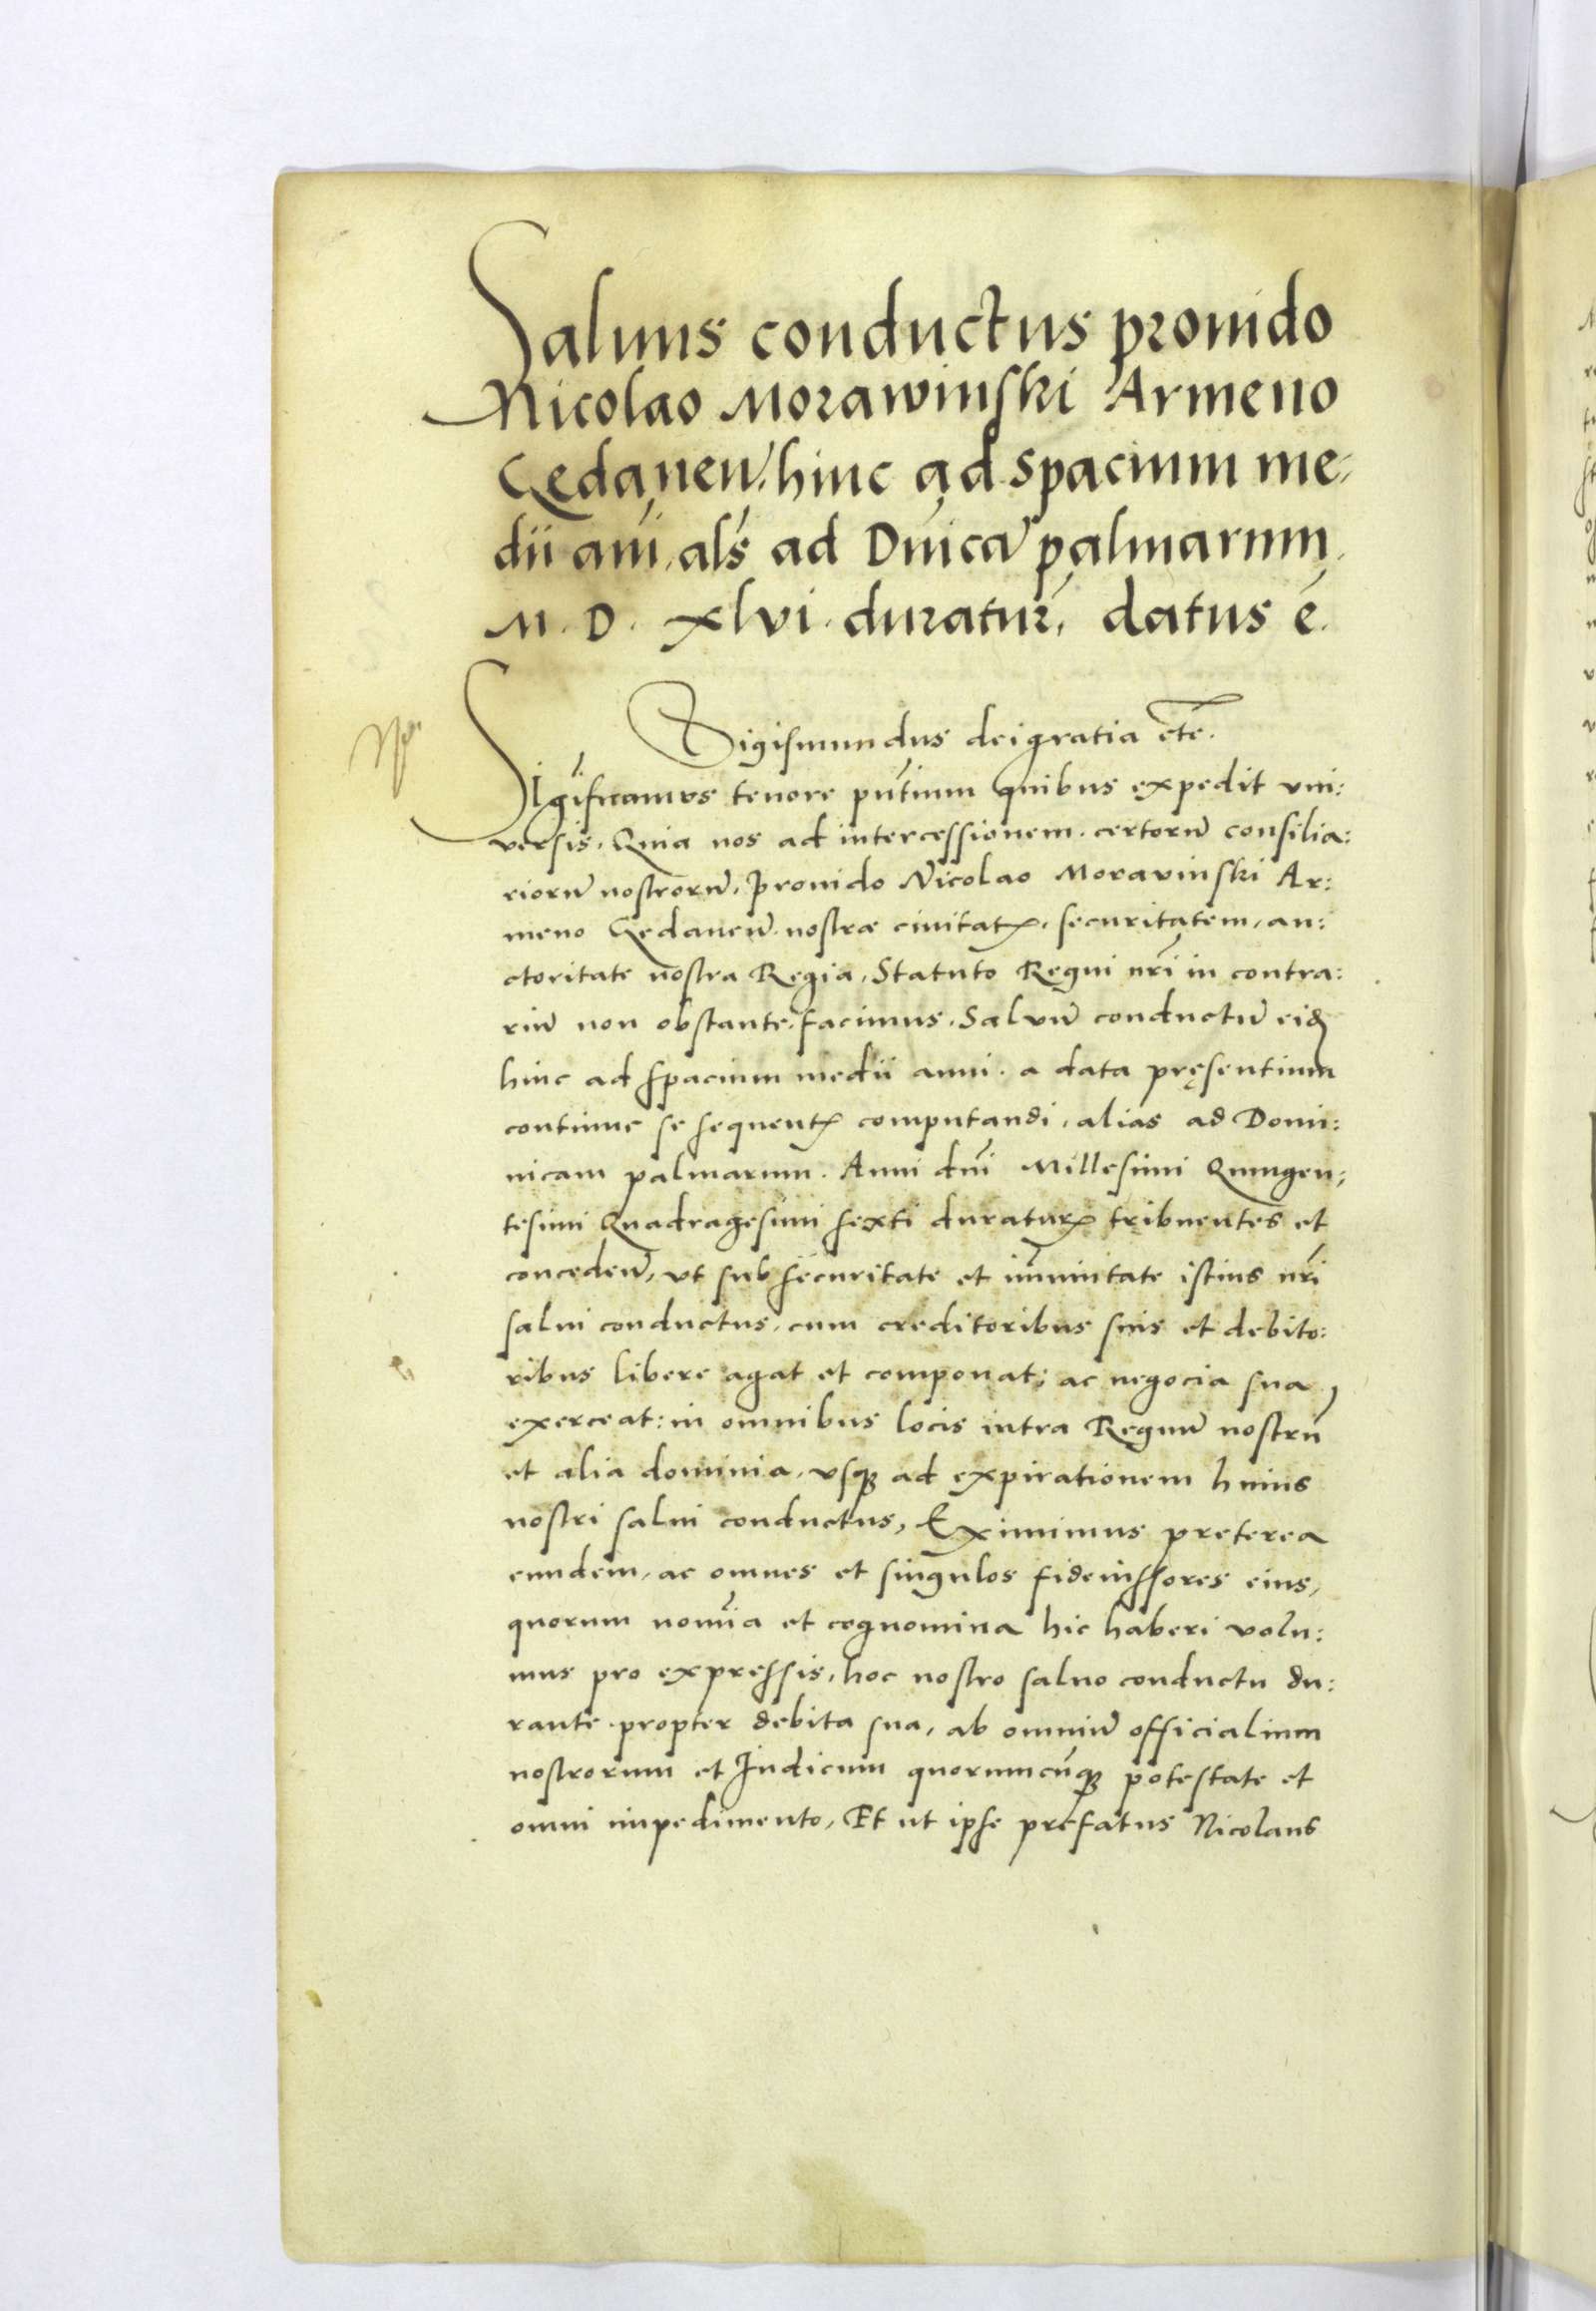 Saluus conductus prouido
Nicolao Morawinski Armeno
Gedaneñ. hinc ad spacium me:
dii añi, als ad Dnica palmarum
M. D. xlvi. duratur, datus ē.
Sigismundus dei gratia etc̄.
Significamus tenore pñtium quibus expedit vni:
versis. Quia nos ad intercessionem certorū consilia:
riorū nostrorū, prouido Nicolao Moravinski Ar:
meno Gedaneñ. nostræ ciuitatꝭ, securitatem, au:
ctoritate nostra Regia, Statuto Regni nrī in contra:
riū non obstante, facimus, Salvū conductū eidꝫ
hinc ad spacium medii anni. a data pręsentium
continue se sequentꝭ computandi, alias ad Domi:
nicam palmarum. Anni dnī Millesimi Quingen:
tesimi Quadragesimi sexti duraturꝭ tribuentes et
concedeñ, vt sub securitate et im̄unitate istius nrī
salui conductus, cum creditoribus suis et debito:
ribus libere agat et componat; ac negocia sua
exerceat: in omnibus locis intra Regnū nostrū
et alia dominia, vsqꝫ ad expirationem huius
nostri salui conductus, Eximimus preterea
eundem, ac omnes et singulos fideiussores eius,
quorum nomīa et cognomina hic haberi volu:
mus pro expressis, hoc nostro saluo conductu du:
rante propter debita sua, ab omniū officialium
nostrorum et Iudicum quorumcūqꝫ potestate et
omni impedimento, Et ut ipse prefatus Nicolaus